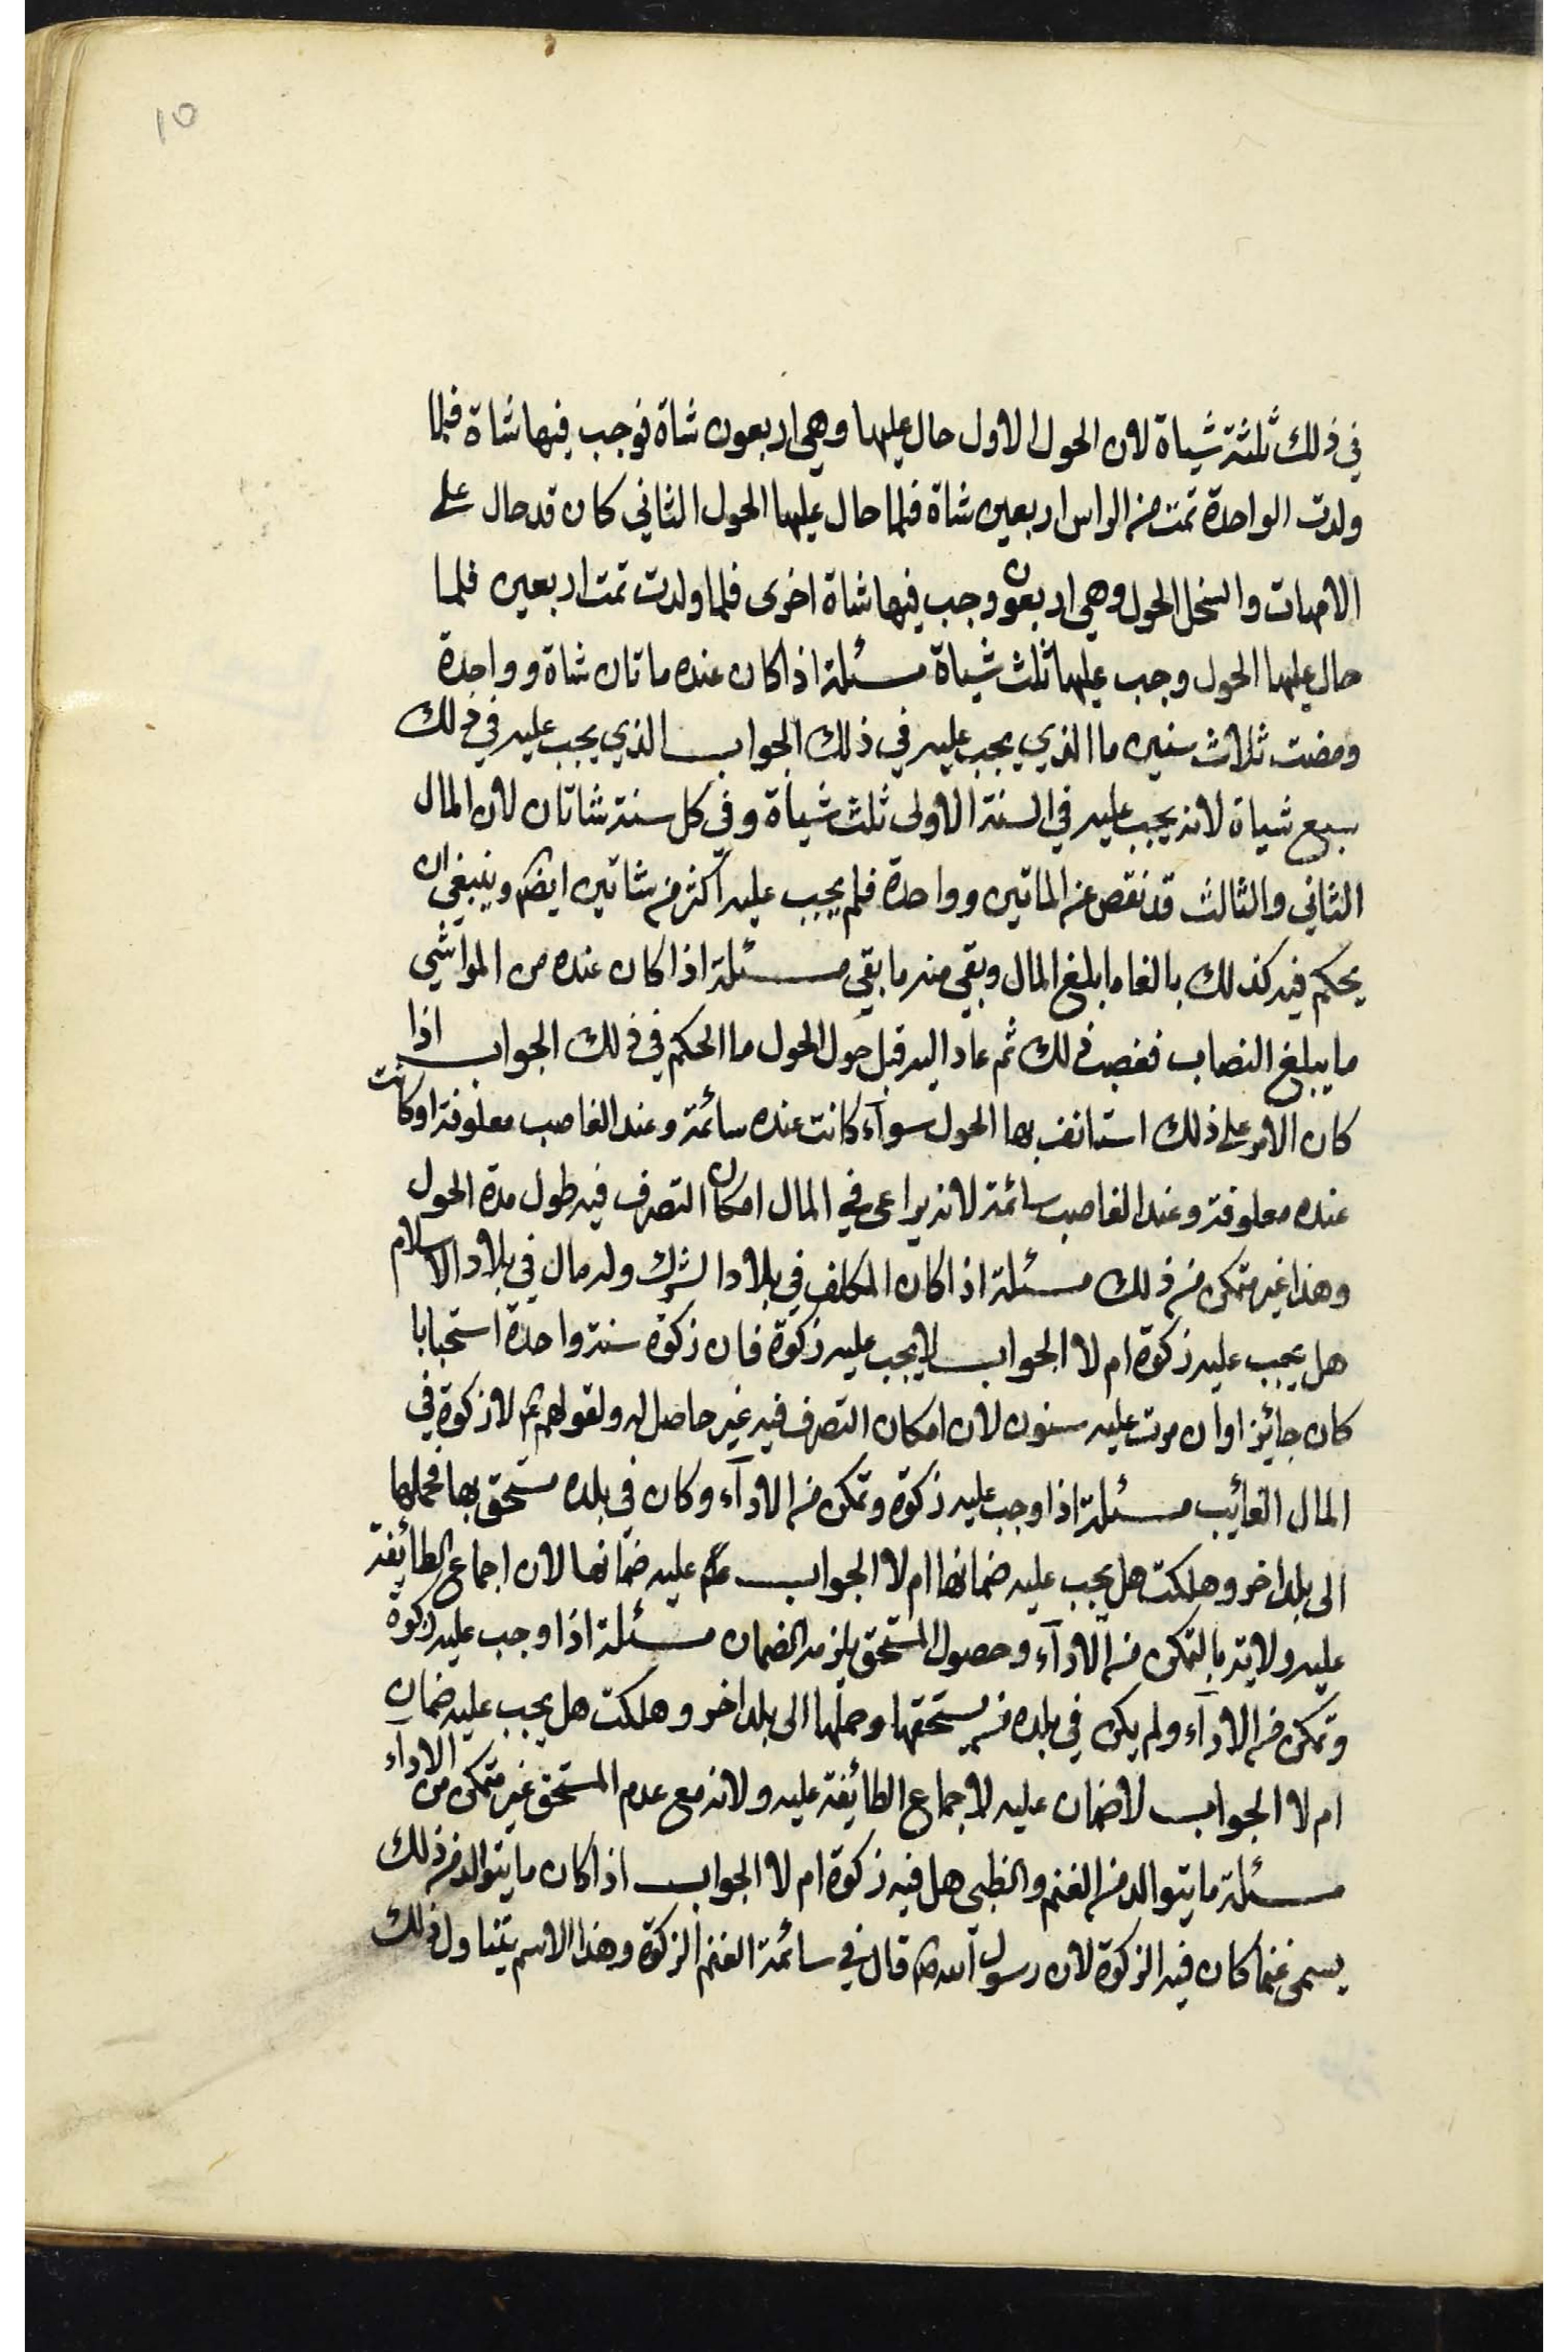 ١٥
في ذلك ثلثة شياة لان الحول الاول حال عليها وهي اربعون شاة فوجب فيها شاة فلما
ولدت الواحدة تمت من الراس اربعين شاة فلما حال عليها الحول الثاني كان قد حال على
الامهات والسخل الحول وهي اربعون وجب فيها شاة اخرى فلما ولدت تمت اربعين فلما
حال عليها الحول وجب عليها ثلث شياة مسئلة اذا كان عنده ماتان شاة وواحدة
ومضت ثلاث سنين ما الذي يجب عليه في ذلك الجواب الذي يجب عليه في ذلك
سبع شياة لانه يجب عليه في السنة الاولى ثلث شياة وفي كل سنة شاتان لان المال
الثاني والثالث قد نقص عن الماتين وواحدة فلم يجب عليه اكثر من شاتين ايضا وينبغي ان
يحكم فيه كذلك بالغا ما بلغ المال وبقي منه ما بقي مسئلة اذا كان عنده من المواشي
ما يبلغ النصاب فغصب ذلك ثم عاد اليه قبل حول الحول ما الحكم في ذلك الجواب اذا
كان الامر على ذلك استانف بها الحول سوآء كانت عنده سائمة وعند الغاصب معلوفة او كانت
عنده معلوفة وعند الغاصب سائمة لانه يراعى في المال امكان التصرف فيه طول مدة الحول
وهذا غير متمكن من ذلك مسئلة اذا كان المكلف في بلاد الشرك وله مال في بلاد الاسلام
هل يجب عليه زكوة ام لا الجواب لا يجب عليه زكوة فان زكوة سنة واحدة استحبابا
كان جائزا وان مرت عليه سنون لان امكان التصرف فيه غير حاصل له ولقولهم ع لا زكوة في
المال الغائب مسئلة اذا وجب عليه زكوة وتمكن من الادآء وكان في بلده مستحق بها فحملها
الى بلد اخر وهلكت هل يجب عليه ضمانها ام لا الجواب عليه ضمانها لان اجماع الطائفة
عليه ولانه بالتمكن من الادآء وحصول المستحق يلزمه الضمان مسئلة اذا وجب عليه زكوة
وتمكن من الادآء ولم يكن في بلده من يستحقها وحملها الى بلد اخر وهلكت هل يجب عليه ضمان
ام لا الجواب لا ضمان عليه لاجماع الطائفة عليه ولانه مع عدم المستحق غير متمكن من الادآء
مسئلة ما يتوالد من الغنم والظبي هل فيه زكوة ام لا الجواب اذا كان ما يتوالد من ذلك
يسمى غنما كان فيه الزكوة لان رسول الله ص قال في سائمة الغنم الزكوة وهذا الاسم يتناول ذلك